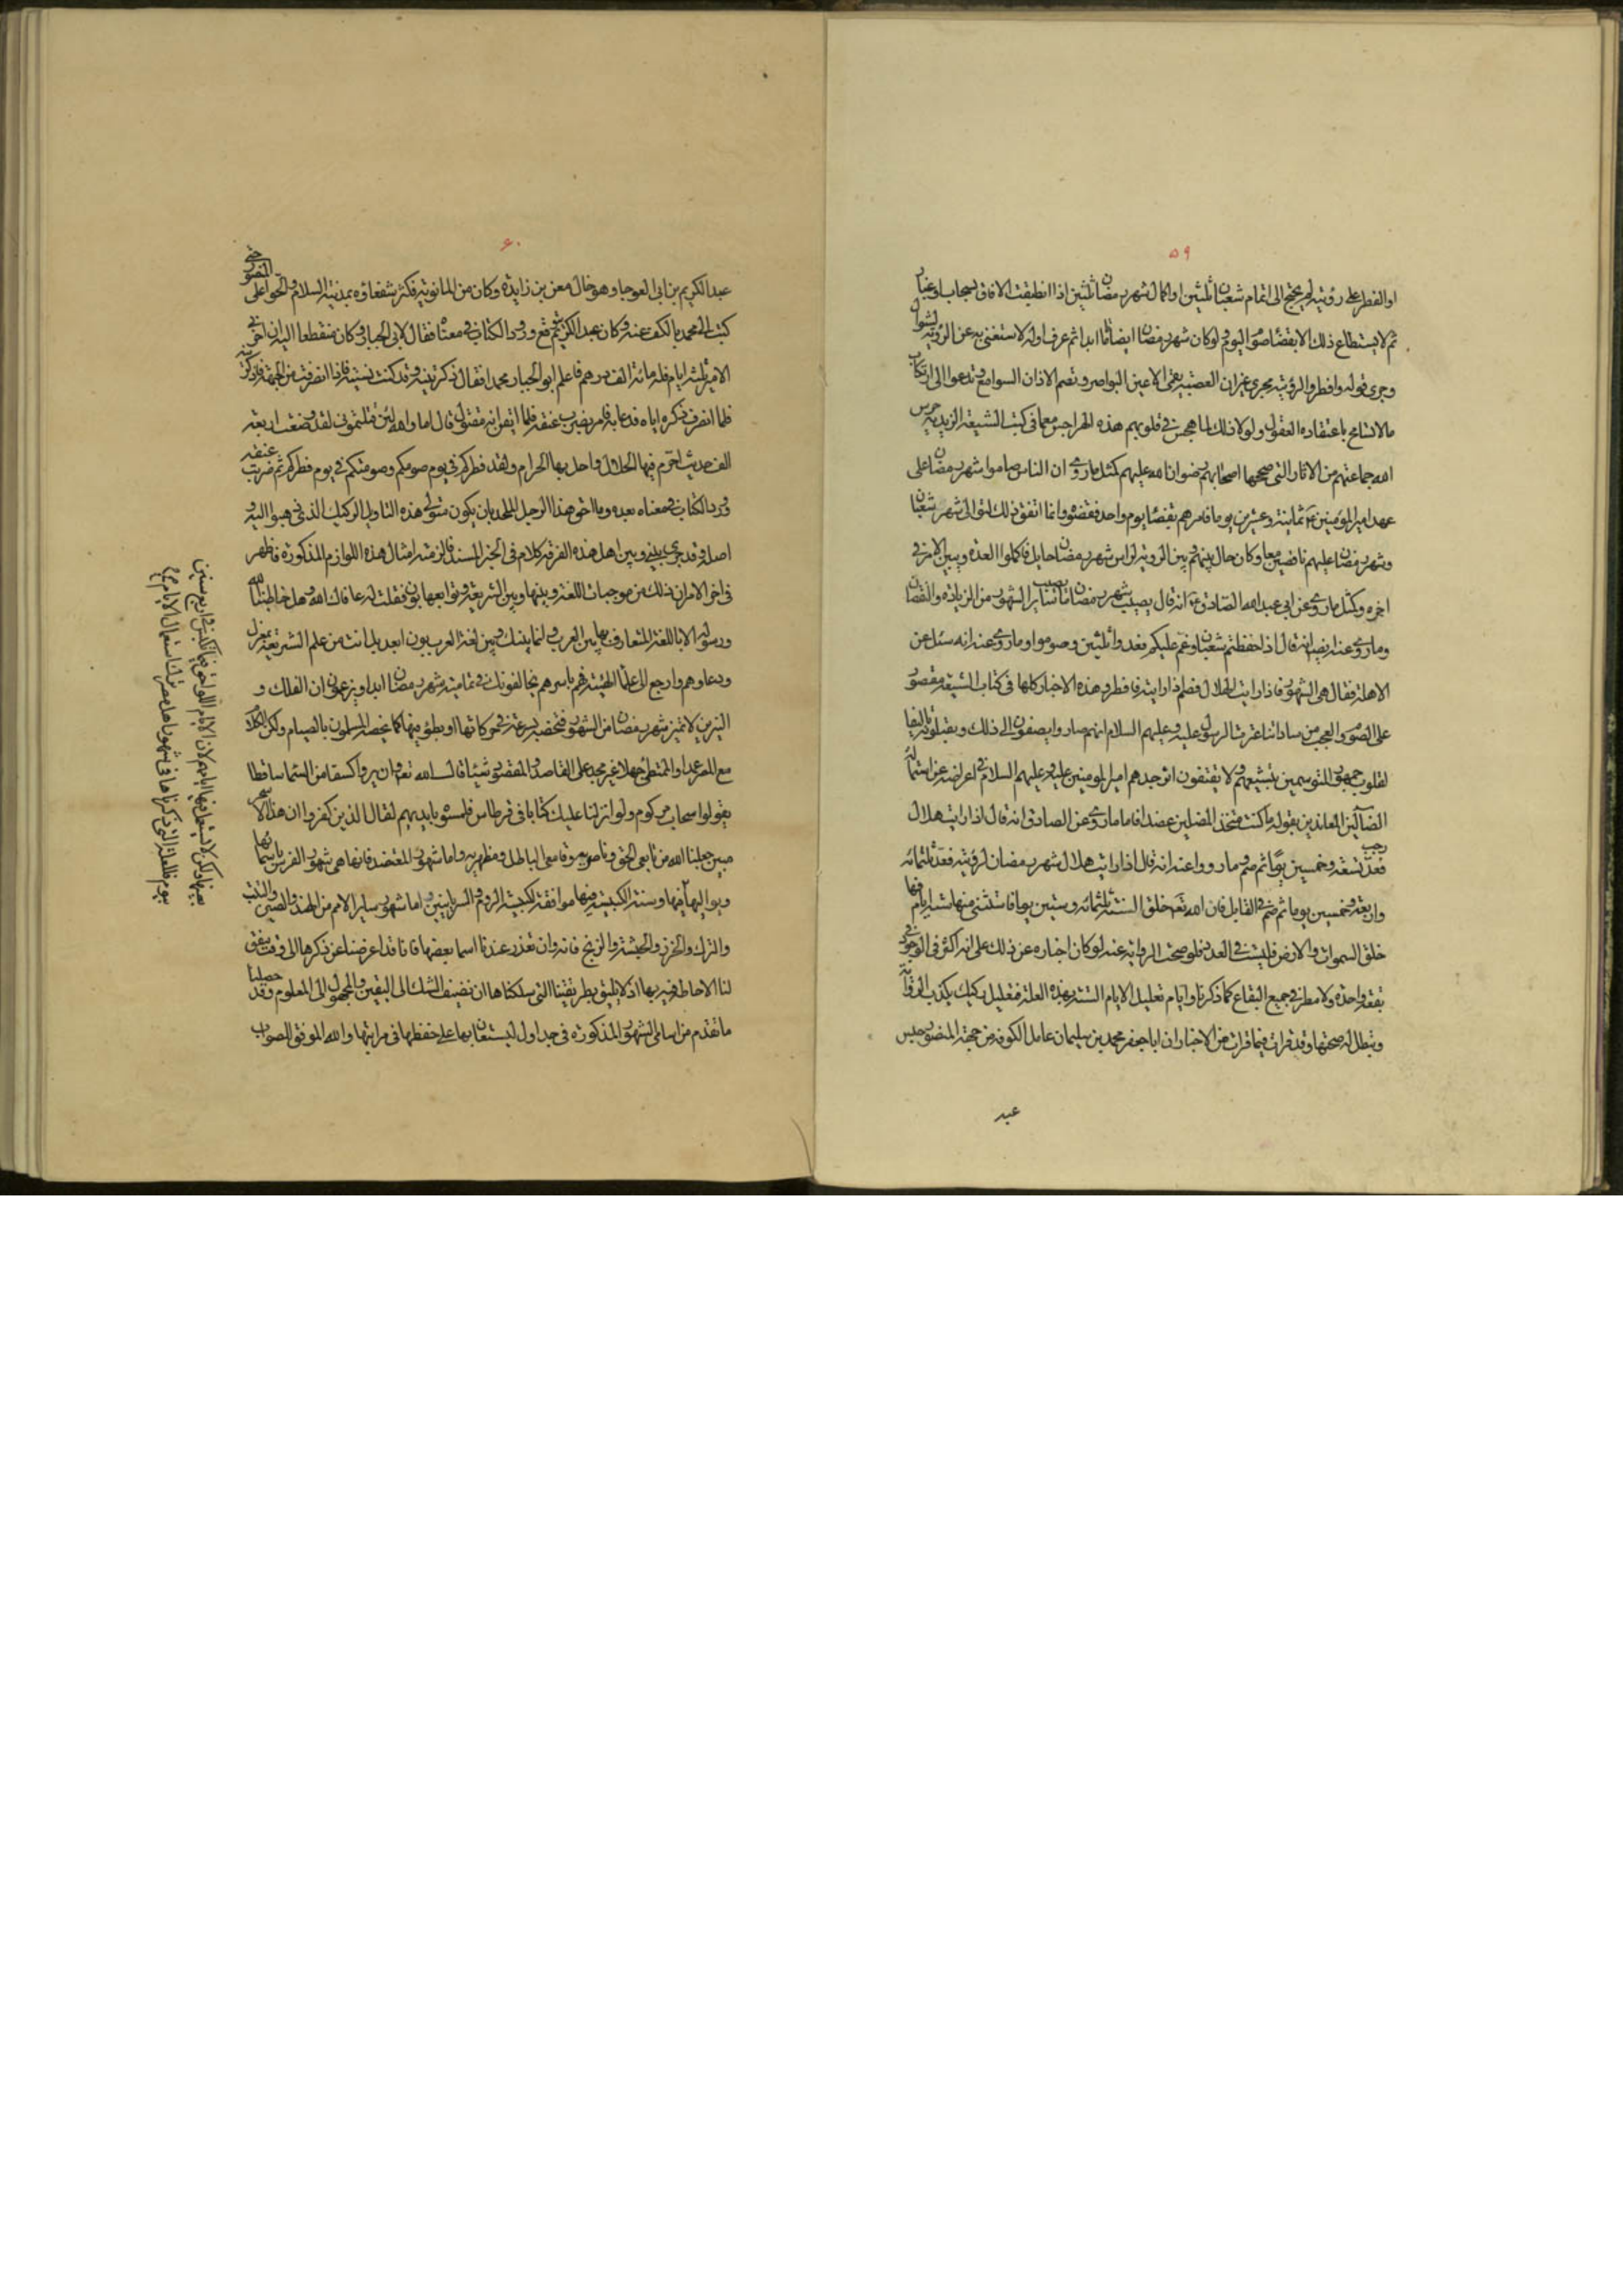 ٥٩
او الفطر على رؤيته لم يحتج الى اتمام شعبان ثلثين او اكمال شهر رمضان ثلثين اذا انطبقت الافاق بسحاب او غبار
ثم لا يستطاع ذلك الا بقضا صوم اليوم ولو كان شهر رمضان ايضا تاما ابدا ثم عرف اوله لاستغنى به عن الرؤية لشوال
وجرى قوله وافطروا لرؤيته مجرى غير ان العصبية يعمى الاعين البواصر وتصم الاذان السوامع وتدعوا الى ارتكاب
ما لا تتسامح باعتقاده العقول ولولا ذلك لما هجس في قلوبهم هذه الهواجس مع ما في كتب الشيعة الزيدية حرس
الله جماعتهم من الاثار التي صححها اصحابهم رضوان الله عليهم كمثل ما روى ان الناس صاموا شهر رمضان على
عهد امير المؤمنين ثمانية وعشرين يوما فامرهم بقضا يوم واحد فقضوه وانما اتفق ذلك لتوالى شهر شعبان
وشهر رمضان عليهم ناقصين معا وكان حال بينهم وبين الرؤية لراس شهر رمضان حايل فاكملوا العدة وتبين الامر في
اخره وكمثل ما روى عن ابي عبد الله الصادق انه قال يصيب شهر رمضان ما يصيب سائر الشهور من الزيادة والنقصان
وما روى عنه ايضا انه قال اذا حفظتم شعبان وغم عليكم فعدوا ثلثين وصوموا وما روى عنه انه سئل عن
الاهلة فقال هي الشهور فاذا رايت الهلال فصم اذا رايته فافطر وهذه الاخبار كلها في كتاب الشيعة مقصور
على الصوم والعجب من ساداتنا عترة الرسول عليه وعليهم السلام انهم صاروا يصغون الى ذلك ويقبلونه تاليفا
لقلوب جمهور المتوسمين بتشيعهم ولا يقتفون اثر جدهم امير المومنين عليه وعليهم السلام في اعراضه عن استمالة
الضالين المعاندين بقوله ما كنت متخذ المضلين عضدا فاما ما روى عن الصادق انه قال اذا رايت هلال
رجب فعد تسعة وخمسين يوما ثم صم وما رووا عنه انه قال اذا رايت هلال شهر رمضان لرؤيته فعد ثلثمائة
واربعة وخمسين يوما ثم صم في القابل فان الله تعالى خلق السنة ثلثمائة وستين يوما فاستثنى منها ستة ايام فيها
خلق السموات والارض فليست في العدد فلو صحت الرواية عنه لو كان اخباره عن ذلك على انه اكثر في الوجود في
بقعة واحدة ولا مطرد في جميع البقاع كما ذكرنا وايام تعليل الايام الستة بهذه العلة فتعليل ركيك يكذب الرواية
وتبطل له صحتها وقد قرات فيما قرات من الاخبار ان ابا جعفر محمد بن سليمان عامل الكوفة من جهة المنصور حبس
عبد
٦٠
عبد الكريم بن ابي العوجا وهو خال معن بن زايدة وكان من المانوية فكثر شفعاؤه بمدينة السلام والحوا على المنصور حتى
كتب الى محمد بالكف عنه وكان عبد الكريم يتوقع ورود الكتاب في معناه فقال لابي الجبار وكان منقطعا اليه ان اخرني
الامير ثلثة ايام فله مائة الف درهم فاعلم ابو الجبار محمدا فقال ذكرتنيه وقد كنت نسيته فاذا انصرفت من الجمعة فاذكرنيه
فلما انصرف ذكره اياه فدعا به فامر بضرب عنقه فلما ايقن انه مقتول قال اما والله لئن قتلتموني لقد وضعت اربعة
الف حديث احرم فيها الحلال واحل بها الحرام ولقد فطركم في يوم صومكم وصومتكم في يوم فطركم ثم ضربت عنقه
وورد الكتاب في معناه بعده وما احق هذا الرجل الملحد بان يكون متولى هذه التاويل الركيك الذي ذهبوا اليه و
اصله وقد جرى بيني وبين اهل هذه الفرقة كلام في الخبر المسند فالزمته امثال هذه اللوازم المذكورة فاظهر
في اخر الامر ان ذلك من موجبات اللغة وبينها وبين الشريعة وتوابعها بون فقلت له عافاك الله وهل خاطبنا الله
ورسوله الا باللغة المتعارف بها بين العرب وانما بينك وبين لغة العرب بون ابعد بل انت من علم الشريعة بمعزل
ودعاوهم وارجع الى علما الهيئة فهم باسرهم يخالفونك في تمامية شهر رمضان ابدا ويزعمون ان الفلك و
النيرين لا تميز شهر رمضان من الشهور فتخصه بسرعة في حركاتها او بطؤ فيها كما يخصه المسلمون بالصيام ولكن الكلام
مع المصر عمدا والمتنطع جهلا غير مجد على القاصد والمقصود شيئا قال الله تعالى وان يروا كسفا من السما ساقطا
يقولوا سحاب مركوم ولو انزلنا عليك كتابا في قرطاس فلمسوه بايديهم لقال الذين كفروا ان هذا الا سحر
مبين جعلنا الله من تابعي الحق وناصريه وقامعي الباطل ومظهريه واما شهور المعتضد فانها هي شهور الفرس باسمائها
وتواليها منها وسنة الكبيسة فيها موافقة لكبيسة الروم والسريانيين واما شهور ساير الامم من الهند والصين والتبت
والترك والخزر والحبشة والزنج فانه وان تعذر عندنا اسما بعضها فانا قد اعرضنا عن ذكرها الى وقت يتفق
لنا الاحاطة فيه بها اذ لا يليق بطريقتنا التي سلكناها ان نضيف الشك الى اليقين والمجهول الى المعلوم وقد حصلنا
ما تقدم من اسامى الشهور المذكورة في جداول ليستعان بها على حفظها في مراتبها والله الموفق للصواب